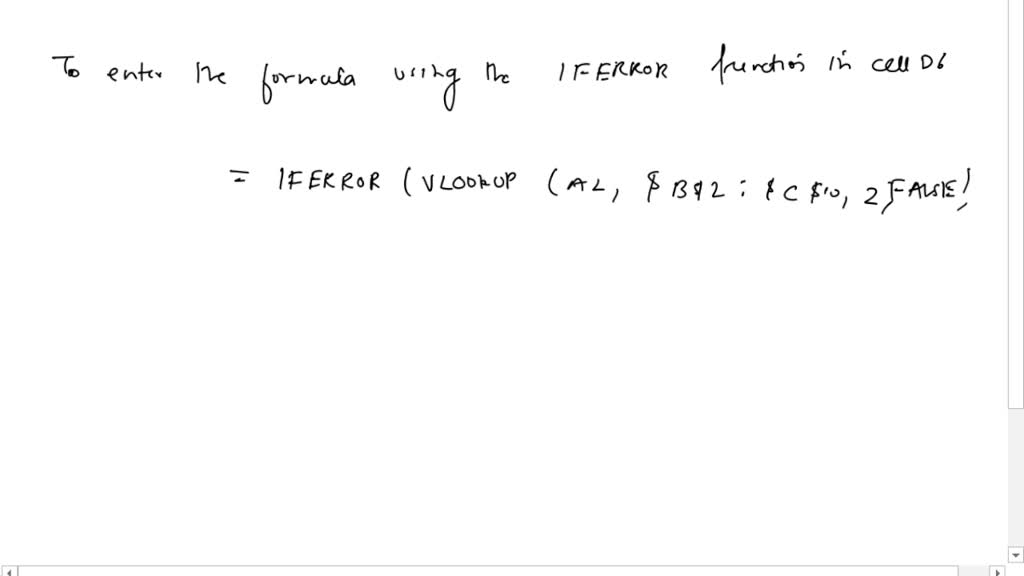 To enter the formula using the IFERROR function in cell D6
= IFERROR (VLOOKUP (A2, $B$2 : $C$10, 2, FALSE),